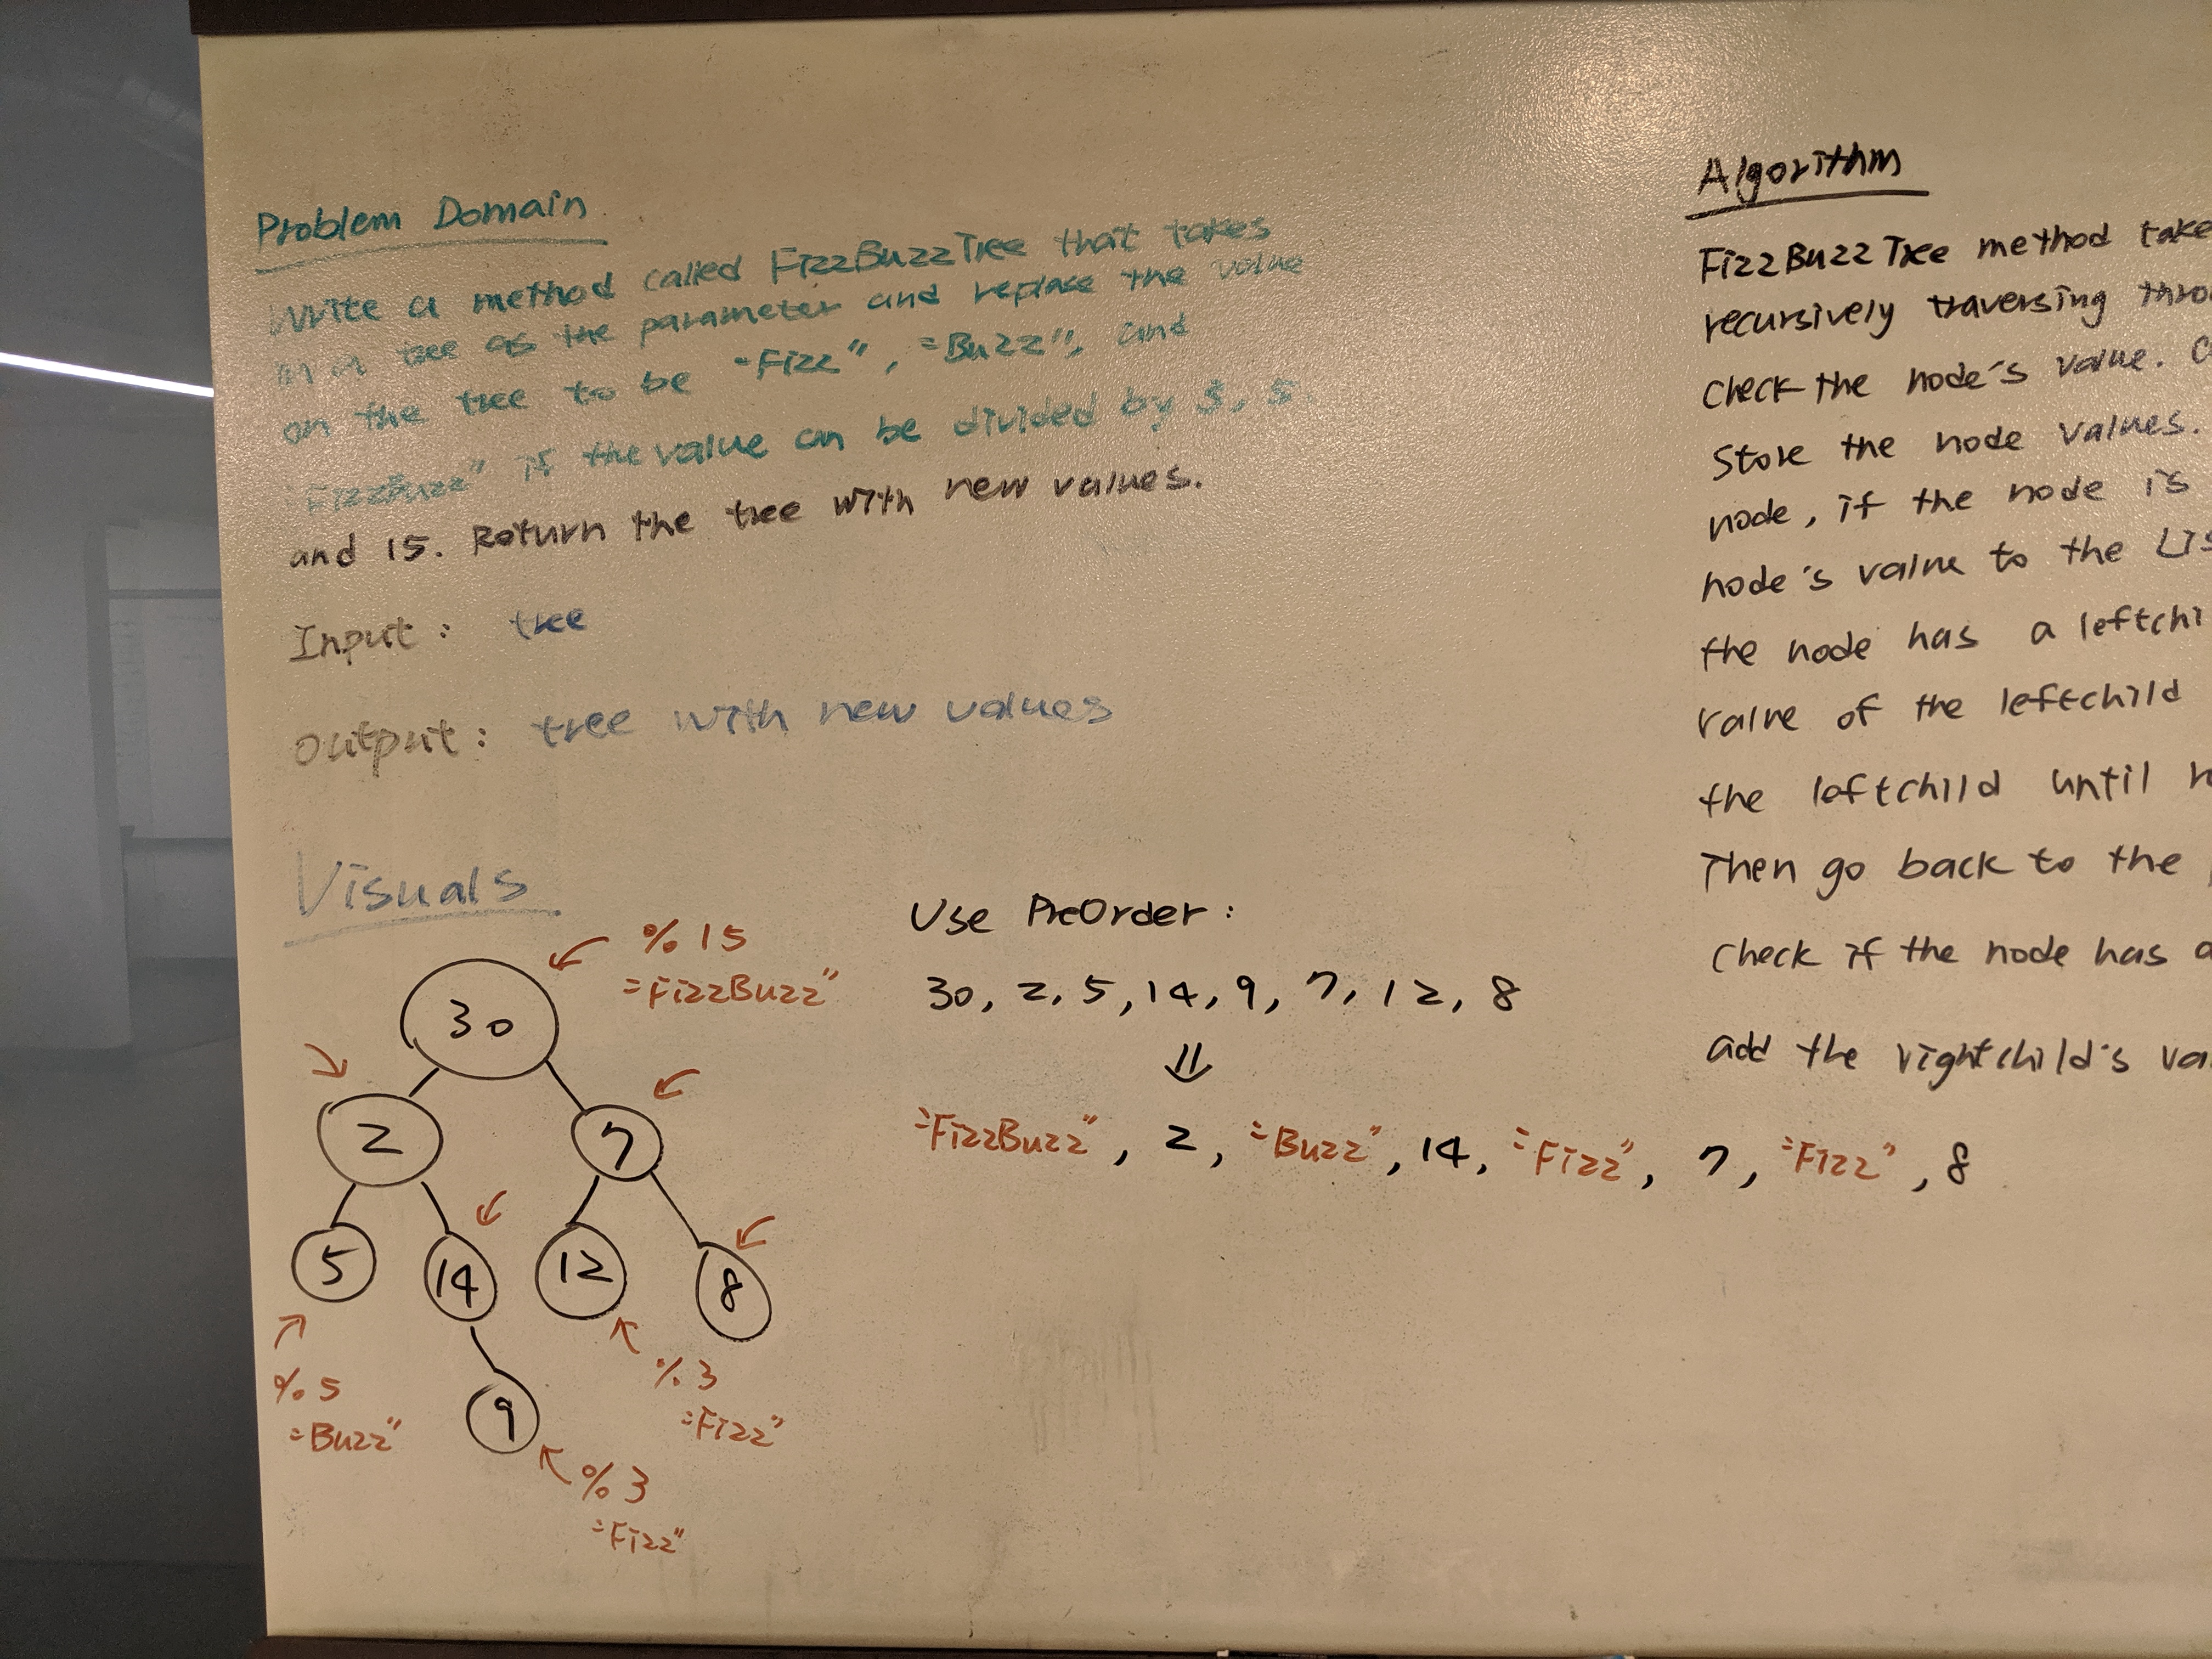 Problem Domain
Write a method called FizzBuzzTree that takes
in a tree as the parameter and replace the value
on the tree to be "Fizz", "Buzz", and
"FizzBuzz" if the value can be divided by 3, 5
and 15. Return the tree with new values.
Input: tree
Output: tree with new values
Visuals
% 15
"FizzBuzz"
30
2
7
5
14
12
8
9
% 5
"Buzz"
% 3
"Fizz"
% 3
"Fizz"
Use PreOrder:
30, 2, 5, 14, 9, 7, 12, 8
"FizzBuzz", 2, "Buzz", 14, "Fizz", 7, "Fizz", 8
Algorithm
FizzBuzzTree method take
recursively traversing thro
check the node's value. C
Store the node values.
node, if the node is
node's value to the Lis
the node has a leftchi
value of the leftchild
the leftchild until
Then go back to the
check if the node has a
add the rightchild's va